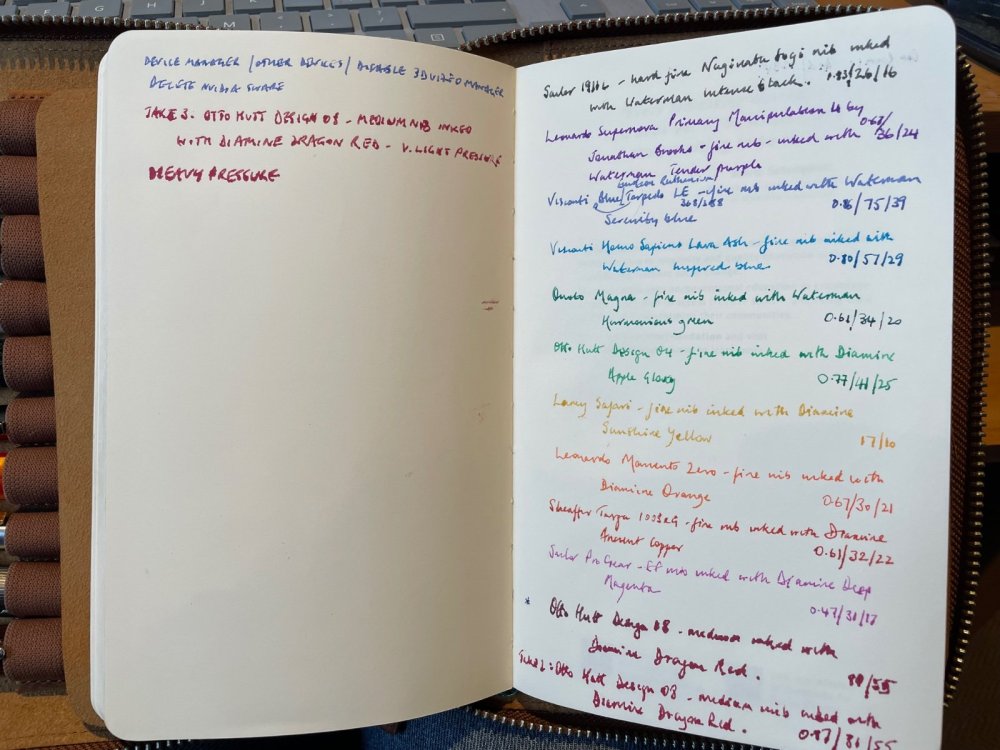 DEVICE MANAGER / OTHER DEVICES / DISABLE 3D VIDEO MANAGER
DELETE NVIDIA SHARE
TAKE 3. OTTO HUTT DESIGN 08 - MEDIUM NIB INKED
WITH DIAMINE DRAGON RED - V. LIGHT PRESSURE
HEAVY PRESSURE
Sailor 1911 L - hard fine Naginata togi nib inked
with Waterman intense black. 0.83/26/16
Leonardo Supernova Primary Manipulation 4 by 0.68/
Jonathan Brooks - fine nib - inked with 36/24
Waterman Tender purple
Visconti Blue Torpedo LE - fine nib inked with Waterman
368/388
Serenity blue 0.86/75/39
Visconti Homo Sapiens Lava Ash - fine nib inked with
Waterman Inspired blue 0.80/57/29
Magna - fine nib inked with Waterman
Harmonious green 0.61/34/20
Otto Hutt Design 04 - fine nib inked with Diamine
Apple Glory 0.77/41/25
Lamy Safari - fine nib inked with Diamine
Sunshine Yellow 17/10
Leonardo Momento Zero - fine nib inked with
Diamine Orange 0.67/30/21
Sheaffer Targa - fine nib inked with Diamine
Ancient Copper 0.61/32/22
Sailor Pro Gear - EF nib inked with Diamine Deep
Magenta
0.47/31/17
* Otto Hutt Design 08 - medium inked with
Diamine Dragon Red.
Take 2: Otto Hutt Design 08 - medium nib inked with
Diamine Dragon Red. 0.87/81/55